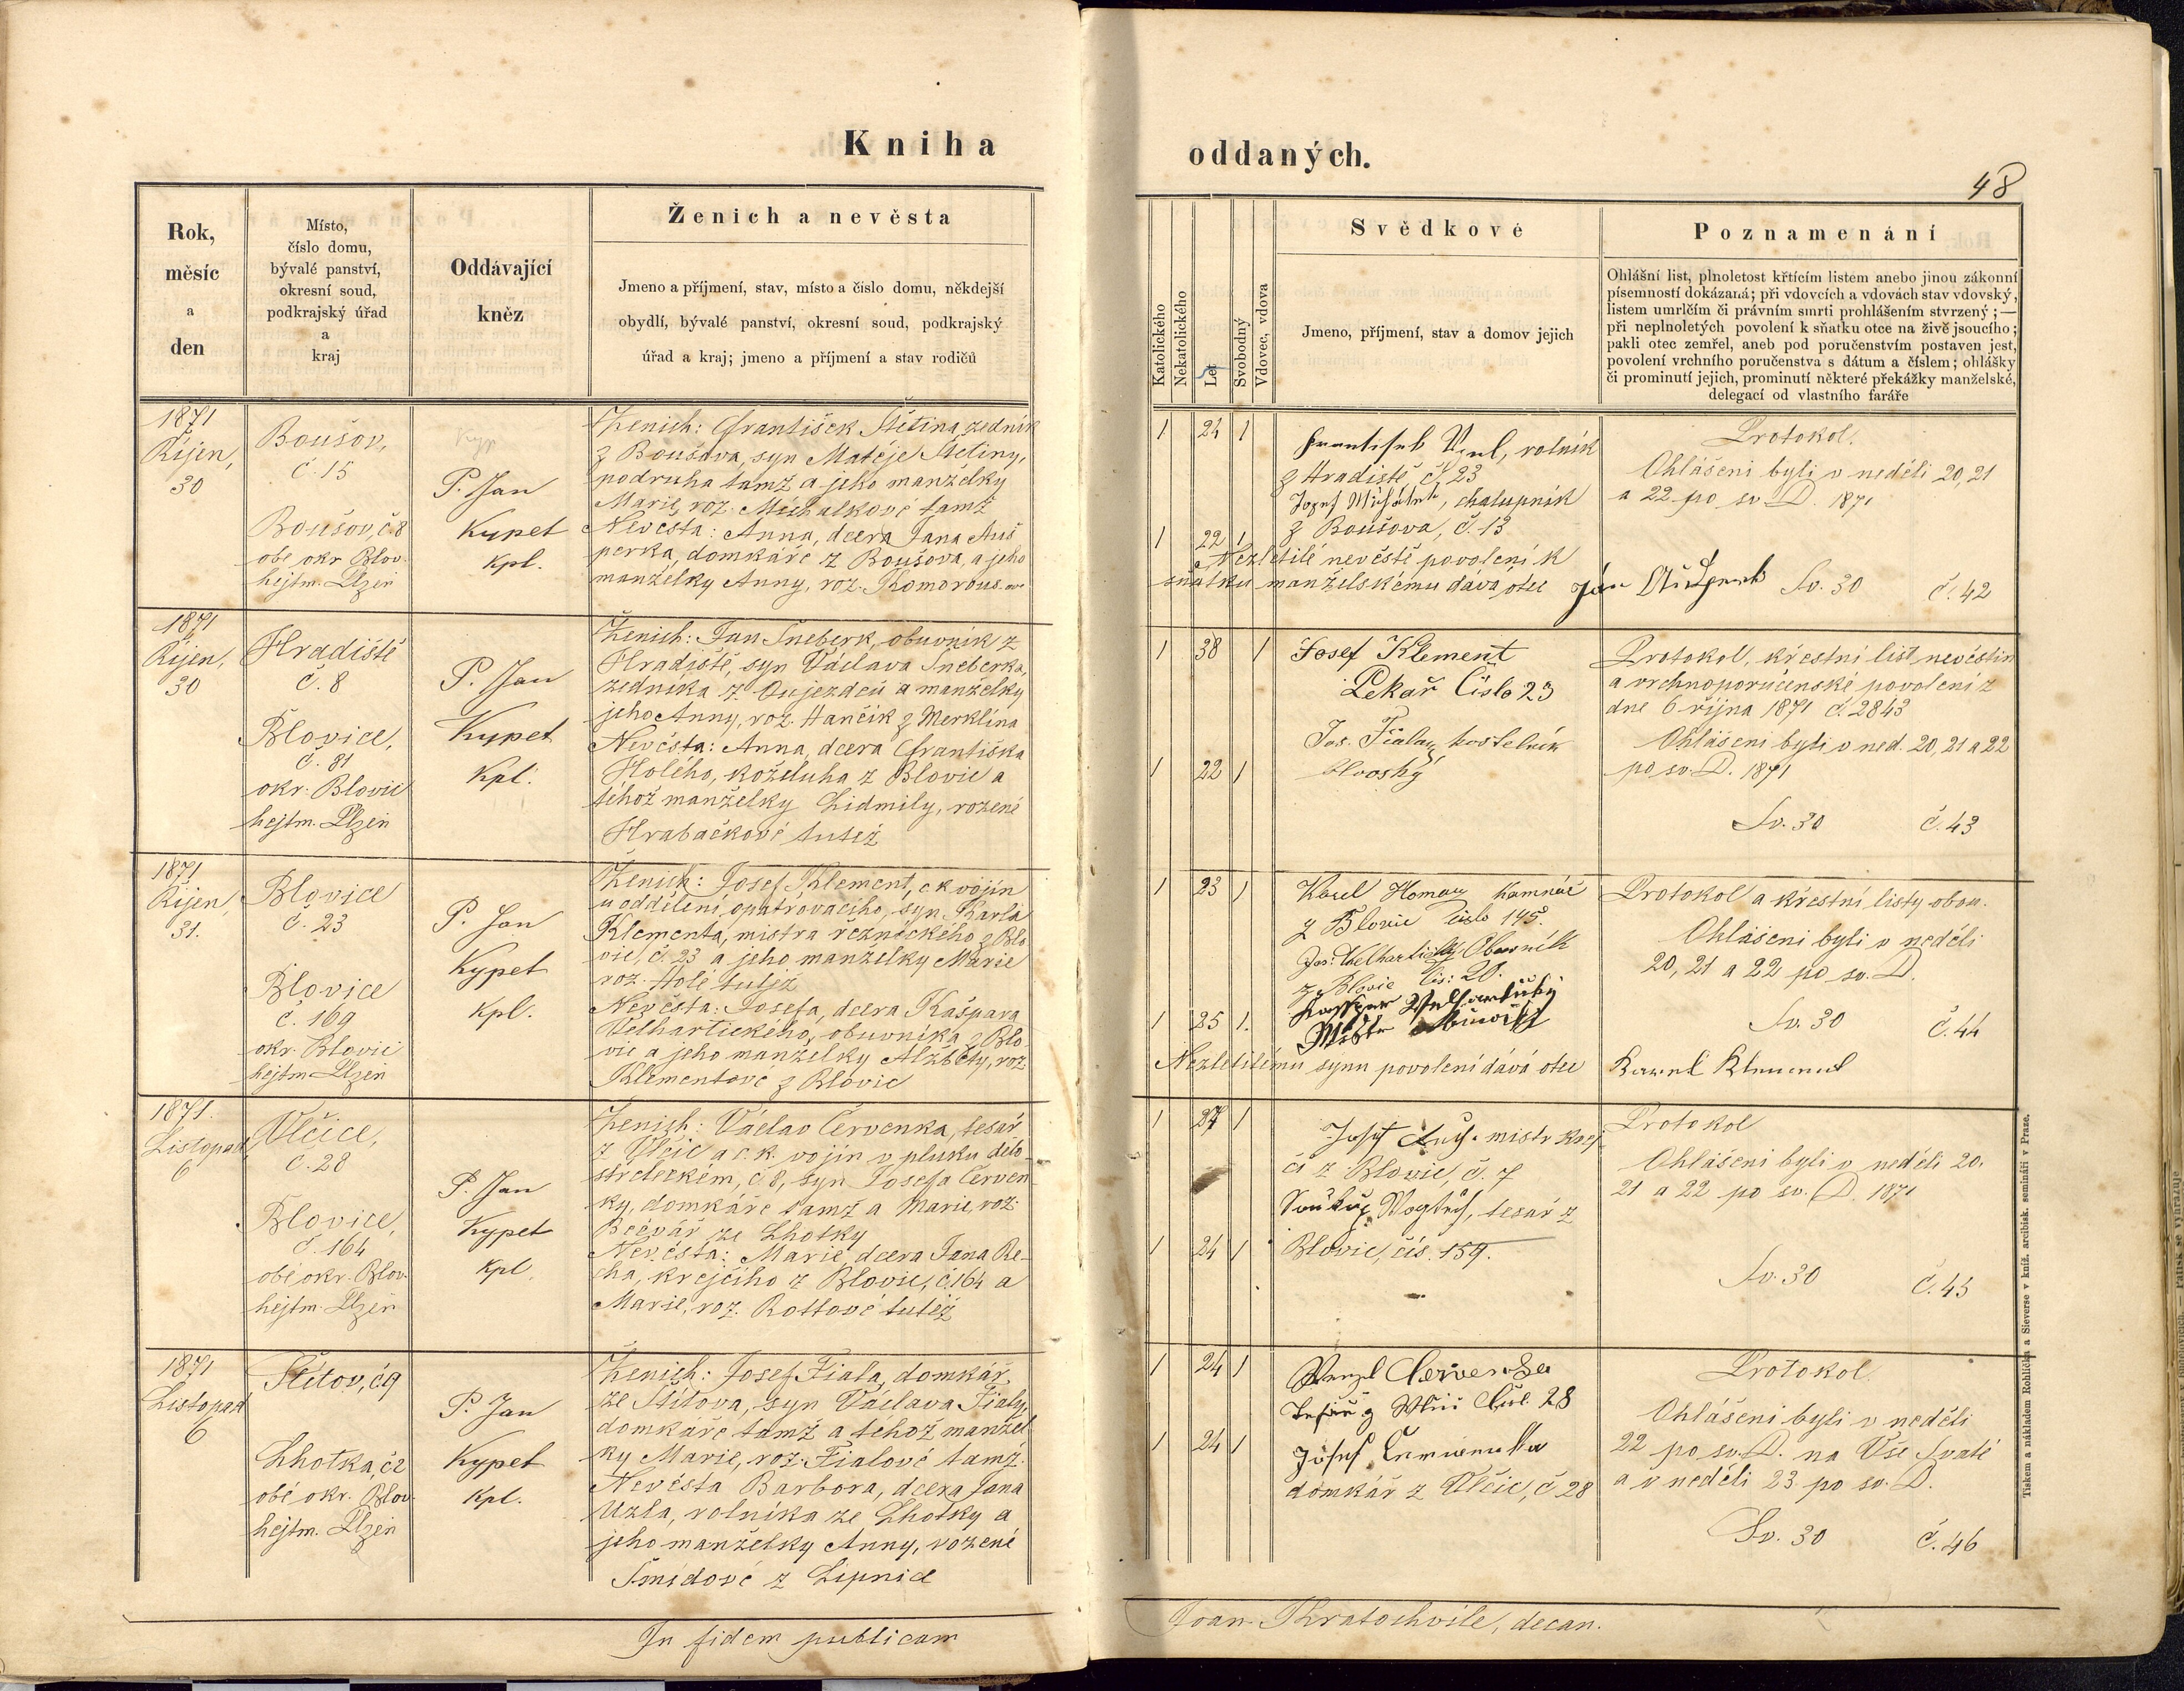 Kniha
Rok,
měsíc
a
den
Místo,
číslo domu,
bývalé panství,
okresní soud,
podkrajský úřad
a
kraj
Oddávající
kněz
Ženich a nevěsta
Jmeno a příjmení, stav, místo a číslo domu, někdejší
obydlí, bývalé panství, okresní soud, podkrajský
úřad a kraj; jmeno a příjmení a stav rodičů
1871
Říjen,
30
Boušov,
č. 15
Boušov, č. 8
obé okr Blov.
hejtm. Plzeň
P. Jan
Kypet
kpl.
Ženich: František Štětina, zedník
z Boušova, syn Matěje Štětiny,
podruha tamž a jeho manželky
Marie, roz. Míchalkové tamž
Nevěsta: Anna, dcera Jana Auš
perka, domkáře z Boušova, a jeho
manželky Anny, roz.
1871
Říjen,
30
Hradiště
č. 8
Blovice,
č. 81
okr. Blovic
hejtm. Plzeň
P. Jan
Kypet
kpl.
Ženich: Jan Šneberk, obuvník z
Hradiště, syn Václava Šneberka,
zedníka z Oujezdců a manželky
jeho Anny, roz. Hančík z Merklína
Nevěsta: Anna, dcera Františka
Holého, koželuha z Blovic a
téhož manželky Lidmily, rozené
Hrabačkové tutéž
1871
Říjen,
31.
Blovice
č. 23
Blovice
č. 169
okr. Blovic
hejtm. Plzeň
P. Jan
Kypet
kpl.
Ženich: Josef Klement, c. k vojín
u oddělení opatrovacího, syn Karla
Klementa, mistra řeznického z Blo
vic, č. 23 a jeho manželky Marie
roz. Holé tutéž
Nevěsta: Josefa, dcera Kašpara
Velhartického, obuvníka z Blo
vic a jeho manželky Alžběty, roz.
Klementové z Blovic
1871.
Listopad
6
Vlčice,
č. 28
Blovice,
č. 164
obé okr. Blov.
hejtm. Plzeň
P. Jan
Kypet
kpl.
Ženich: Václav Červenka, tesař
z Vlčic a c. k. vojín v pluku dělo
střeleckém, č. 8, syn Josefa Červen
ky, domkáře tamž a Marie, roz.
Bečvář ze Lhotky
Nevěsta: Marie, dcera Jana Re-
cha, krejčího z Blovic, č. 164 a
Marie, roz. Rottové tutéž
1871
Listopad
6
Štítov, č. 9
Lhotka, č 2
obé okr. Blov.
hejtm. Plzeň
P. Jan
Kypet
kpl.
Ženich: Josef Fiala, domkář
ze Štítova, syn Václava Fialy,
domkáře tamž a téhož manžel
ky Marie, roz. Fialové tamž.
Nevěsta Barbora, dcera Jana
Uzla, rolníka ze Lhotky a
jeho manželky Anny, rozené
Šmídové z Lipnice
In fidem publicam
oddaných.
48
Katolického
Nekatolického
Let
Svobodný
Vdovec, vdova
Svědkové
Jmeno, příjmení, stav a domov jejich
Poznamenání
Ohlášní list, plnoletost křtícím listem anebo jinou zákonní
písemností dokázaná; při vdovcích a vdovách stav vdovský,
listem umrlčím či právním smrti prohlášením stvrzený; —
při neplnoletých povolení k sňatku otce na živě jsoucího;
pakli otec zemřel, aneb pod poručenstvím postaven jest,
povolení vrchního poručenstva s dátum a číslem; ohlášky
či prominutí jejich, prominutí některé překážky manželské,
delegací od vlastního faráře
1 24 1
František, rolník
z Hradiště, č. 23
Josef, chalupník
z Boušova, č. 13
1 22 1
Nezletilé nevěstě povolení k
sňatku manželskému dává otec Jan Aušperk
Protokol.
Ohlášeni byli v neděli 20, 21
a 22 po sv. D. 1871
Sv. 30 č. 42
1 38 1
Josef Klement
Pekař Číslo 23
Jos. Fiala, kostelník
blovský
1 22 1
Protokol, křestní list nevěstin
a vrchnoporučenské povolení z
dne 6 října 1871 č. 2843
Ohlášeni byli v ned. 20, 21 a 22
po sv. D. 1871
Sv. 30 č. 43
1 23 1
Karel Homan kamnář
z Blovic číslo 145
Jos: Welhartický Obuvník
z Blovic
Kašpar Welhartický
1 25 1.
Nezletilému synu povolení dává otec Karel Klement
Protokol a křestní listy obou.
Ohlášeni byli v neděli
20, 21 a 22 po sv. D.
Sv. 30 č. 44
1 27 1
Josef, mistr krej
čí z Blovic, č. 7
Soukup, tesař z
Blovic, čís. 159.
1 24 1
Protokol
Ohlášeni byli v neděli 20.
21 a 22 po sv. D. 1871
Sv. 30 č. 45
1 24 1
Wenzl Červenka
Tesař z Vlčic Čísl. 28
1 24 1
Josef Červenka
domkář z Vlčic, č 28
Protokol.
Ohlášeni byli v neděli
22 po sv. D. na Vše Svaté
a v neděli 23 po sv. D.
Sv. 30 č. 46
Joan Kratochvíle, decan.
Tiskem a nákladem Rohlíčka a Sieverse v kníž. arcibisk. semináři v Praze.